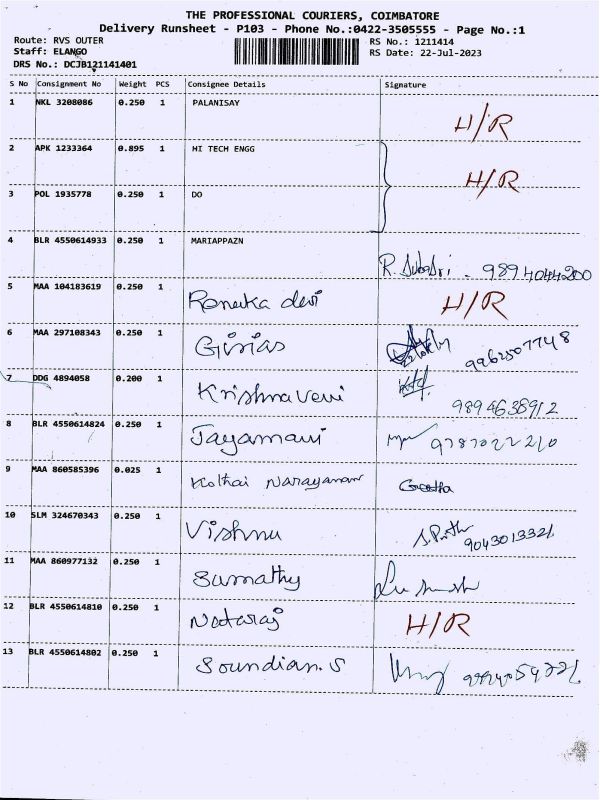 THE PROFESSIONAL COURIERS, COIMBATORE
Delivery Runsheet - P103 - Phone No.:0422-3505555 - Page No.:1
Route: RVS OUTER RS No.: 1211414
Staff: ELANGO RS Date: 22-Jul-2023
DRS No.: DCJB121141401
S No Consignment No Weight PCS Consignee Details Signature
1 NKL 3208086 0.250 1 PALANISAY H/R
2 APK 1233364 0.895 1 HI TECH ENGG H/R
3 POL 1935778 0.250 1 DO
4 BLR 4550614933 0.250 1 MARIAPPAZN
5 MAA 104183619 0.250 1 Renuka devi H/R
6 MAA 297108343 0.250 1 Girias 9962507748
7 DDG 4894058 0.200 1 Krishnaveni 9894638912
8 BLR 4550614824 0.250 1 Jayamani 9787022210
9 MAA 860585396 0.025 1 Kothai Narayanan Geetha
10 SLM 324670343 0.250 1 Vishnu 9043013321
11 MAA 860977132 0.250 1 Sumathy
12 BLR 4550614810 0.250 1 Nataraj H/R
13 BLR 4550614802 0.250 1 Soundian.S